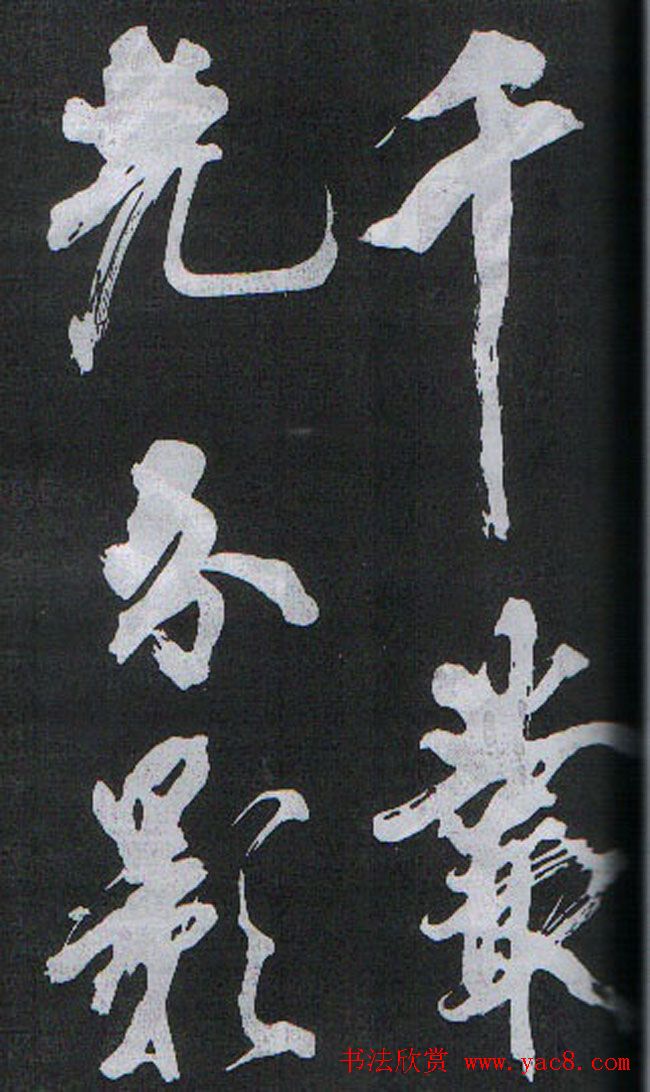 千叢
分影
书法欣赏 www.yac8.com